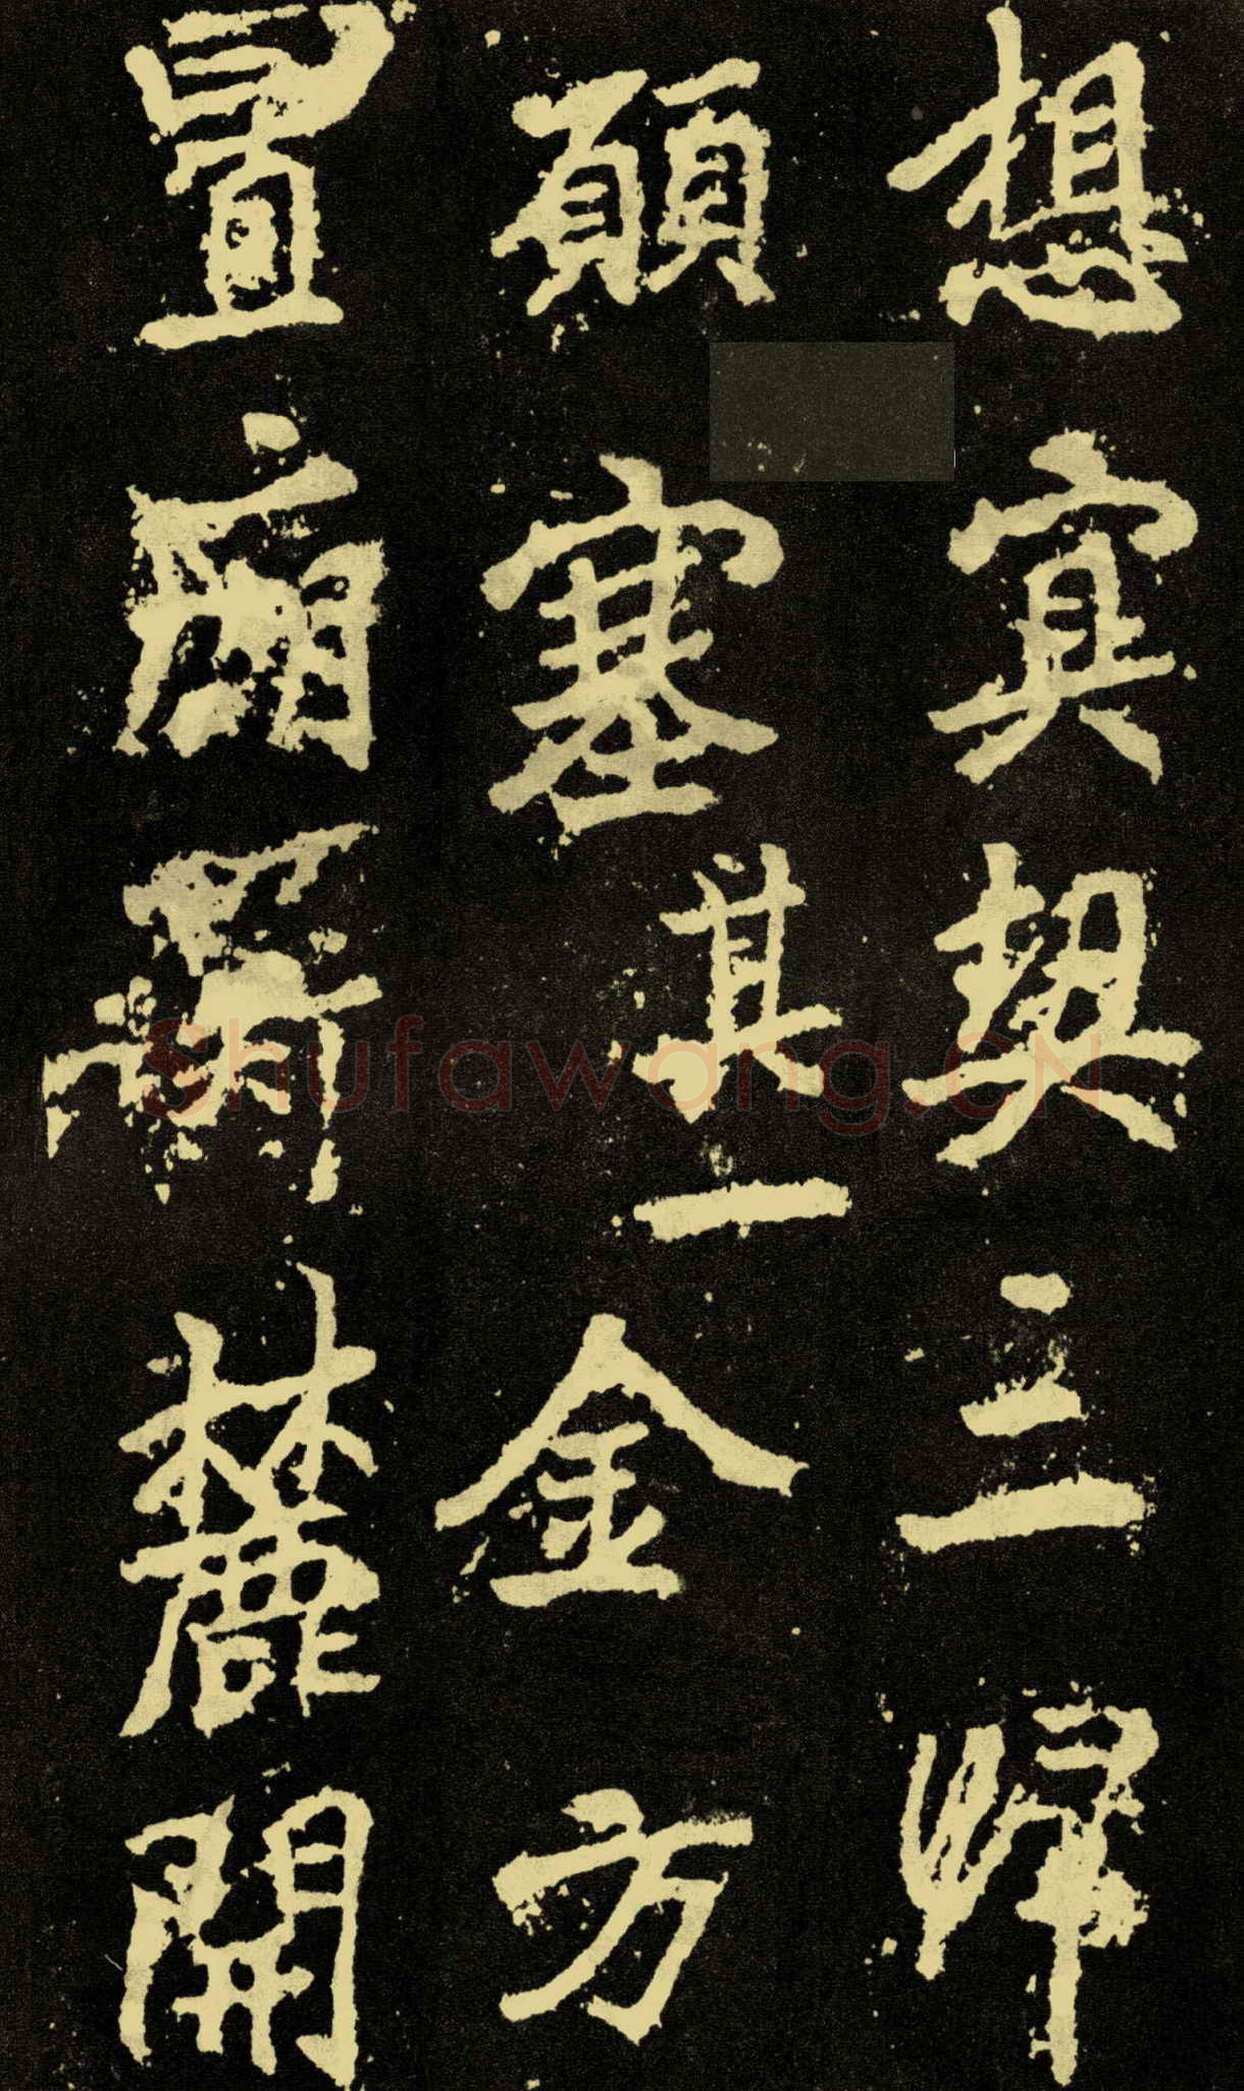 想冥契三歸
願塞其一金方
置廟麓開
Shufawang.CN